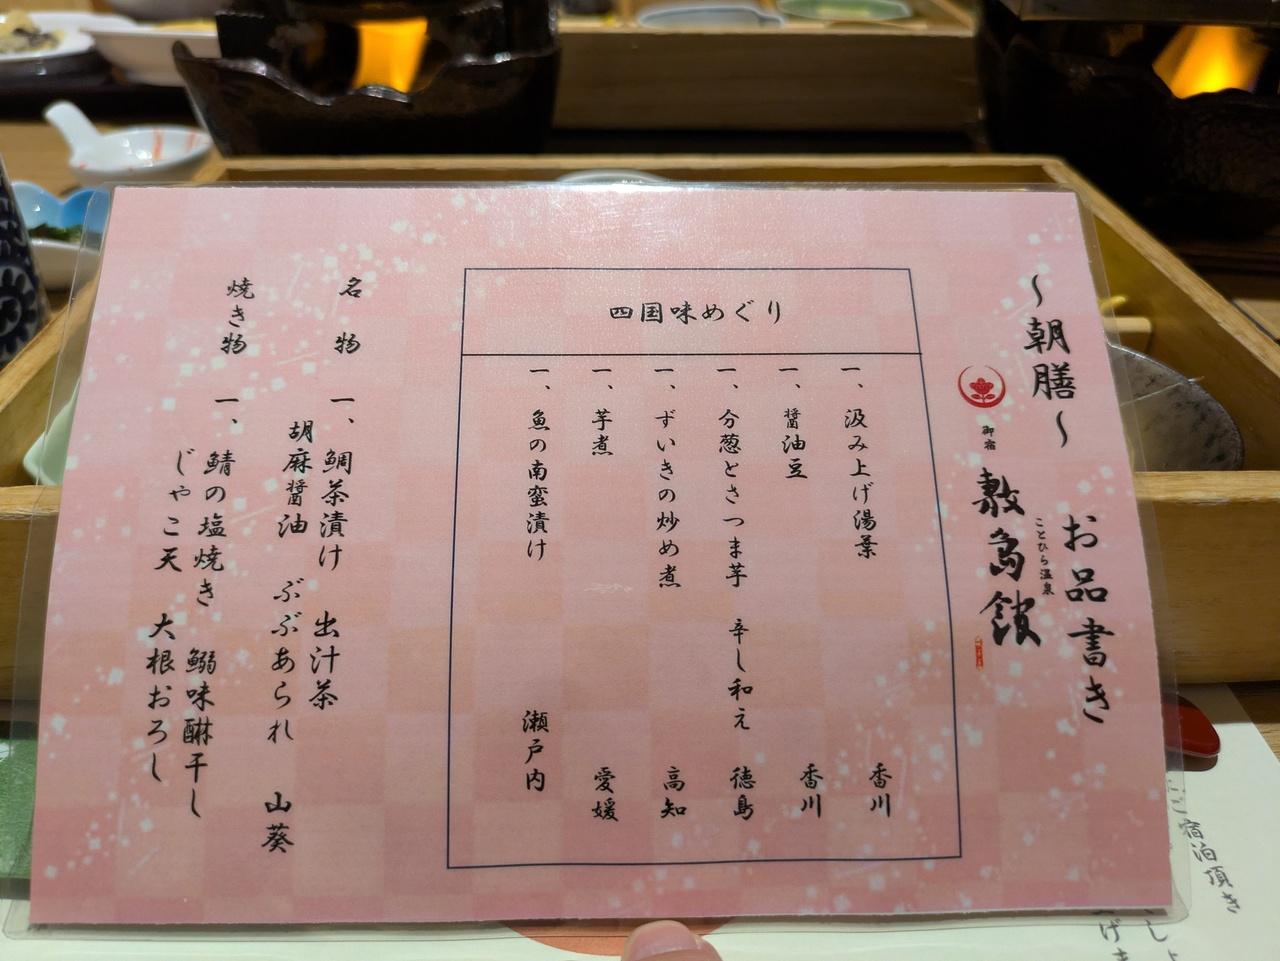 ～朝膳～
お品書き
ことひら温泉
御宿
敷島館
四国味めぐり
一、汲み上げ湯葉 香川
一、醤油豆 香川
一、分葱とさつま芋 辛し和え 徳島
一、ずいきの炒め煮 高知
一、芋煮 愛媛
一、魚の南蛮漬け 瀬戸内
名物 一、鯛茶漬け 出汁茶
胡麻醤油 ぶぶあられ 山葵
焼き物 一、鯖の塩焼き 鰯味醂干し
じゃこ天 大根おろし
宿泊頂き